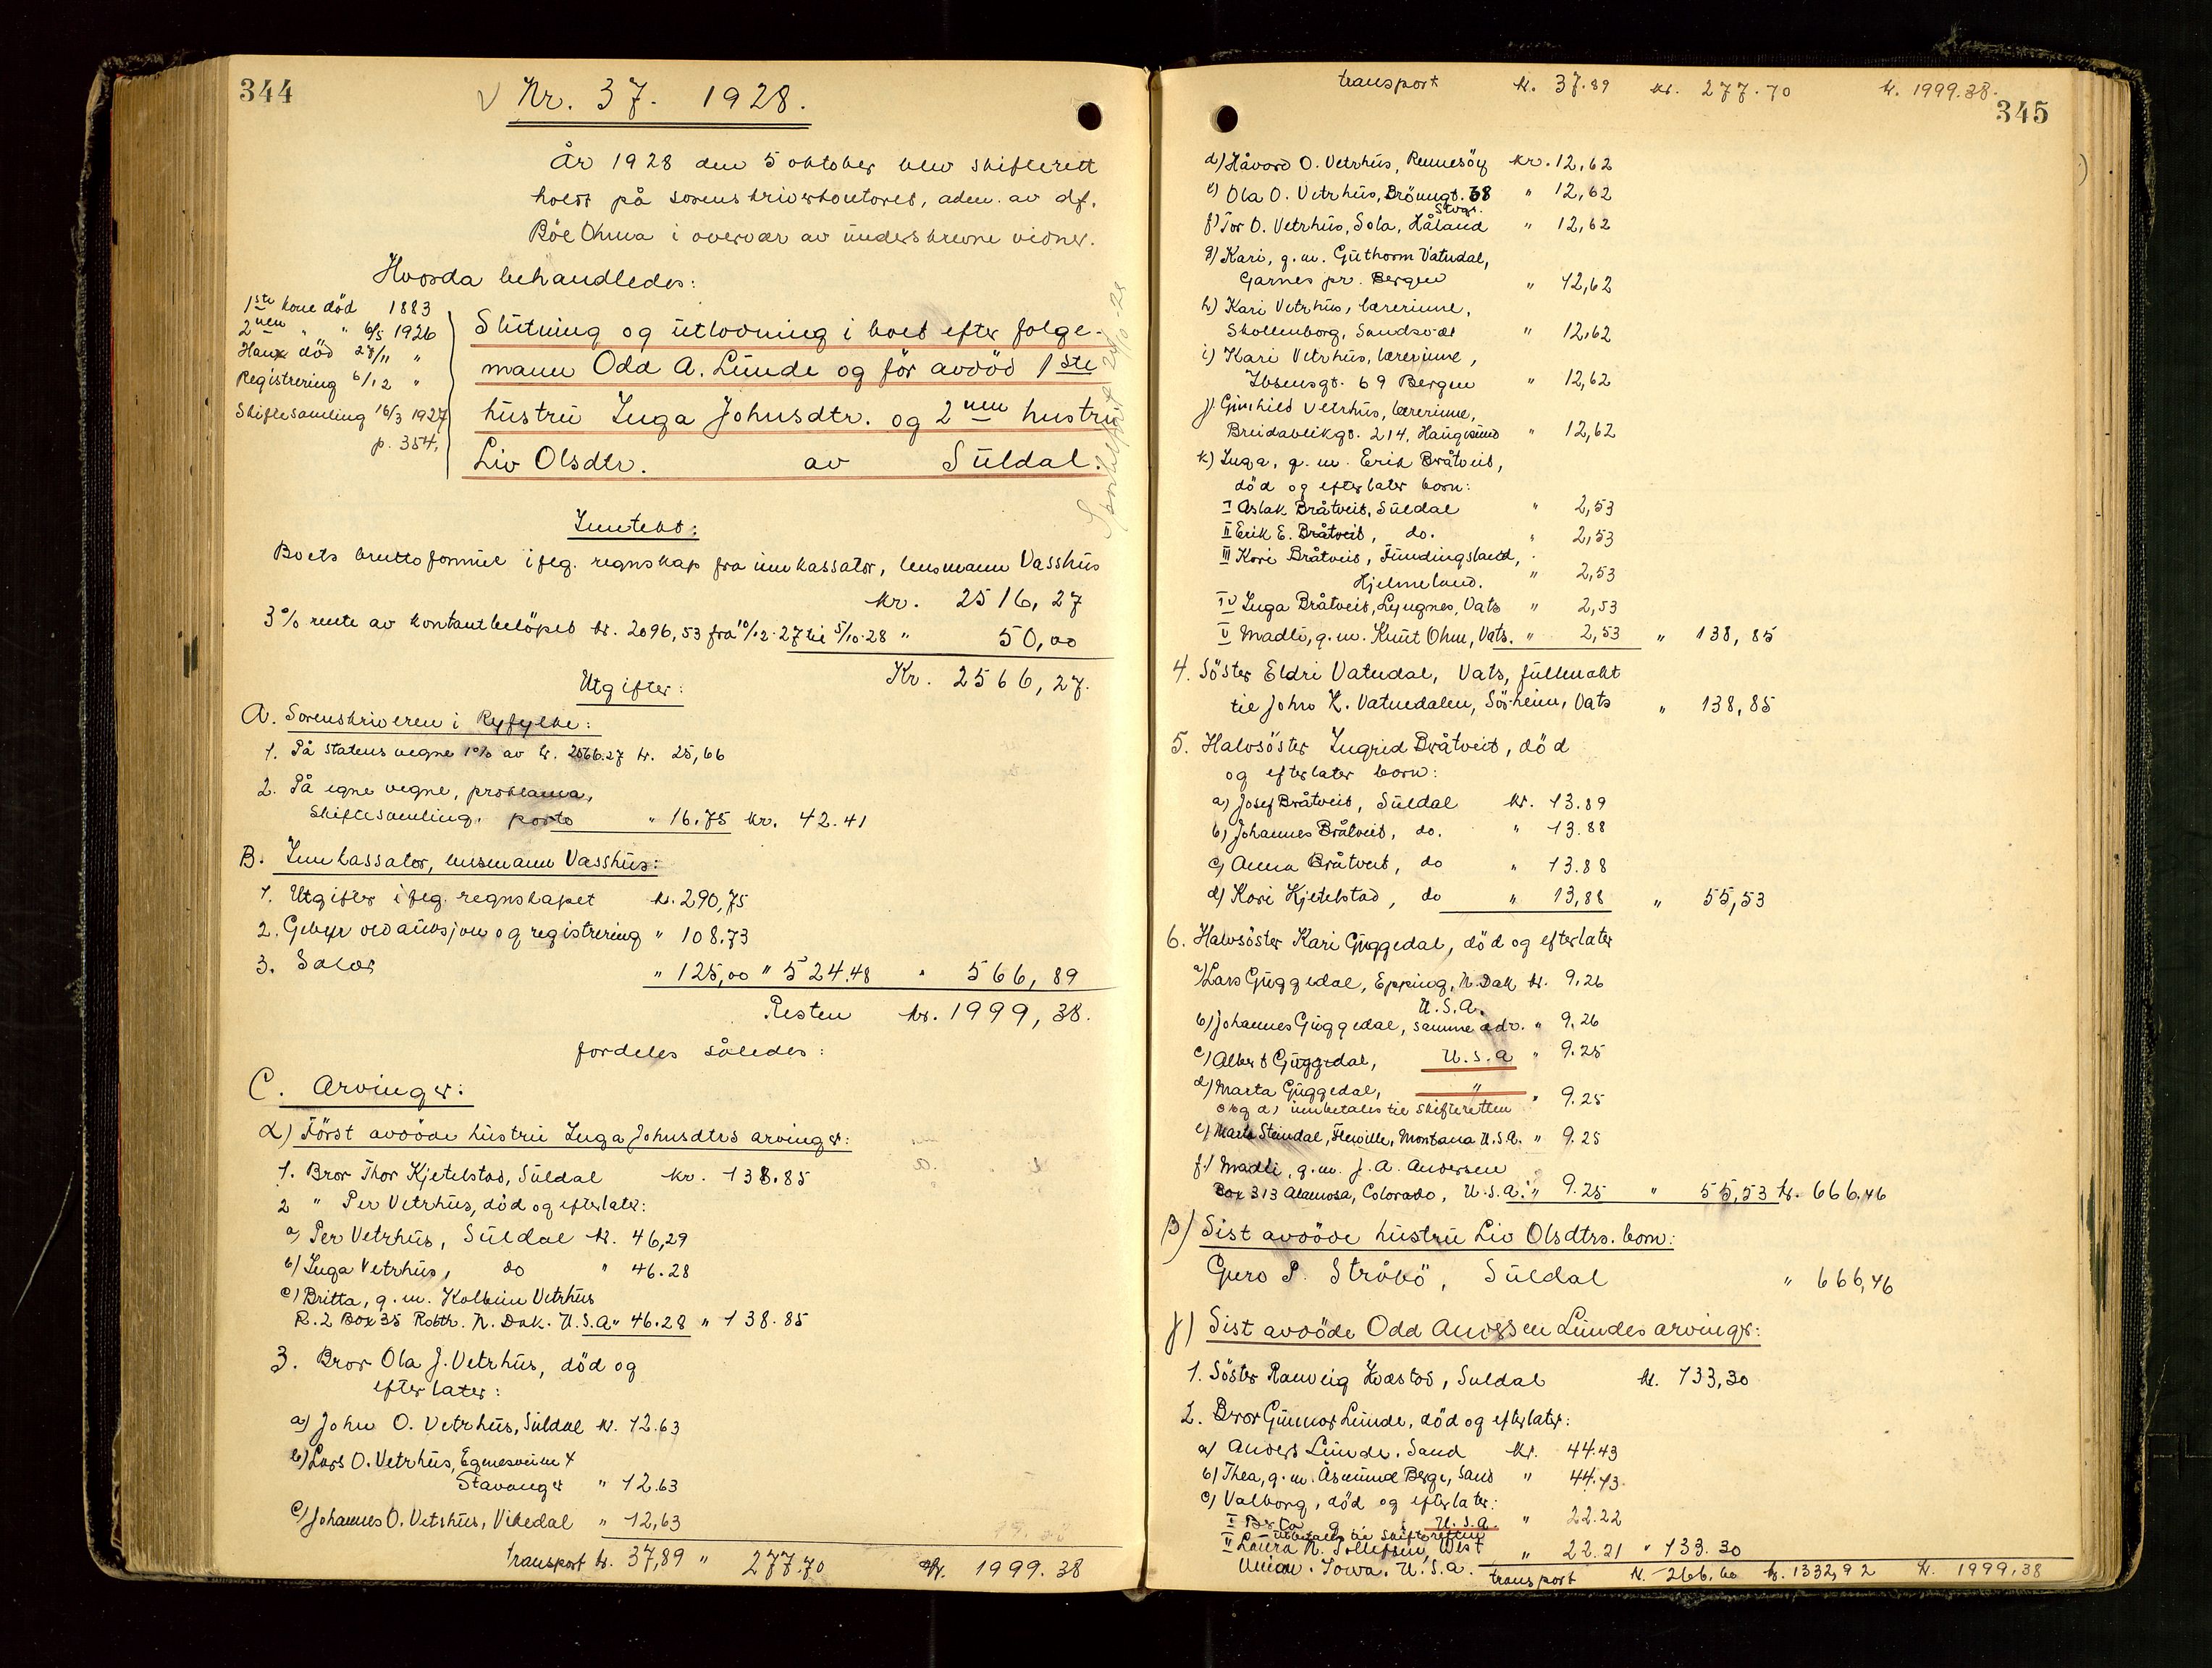 344
V Nr. 37. 1928.
År 1928 den 5 oktober blev skifterett
holdt på sorenskriverkontoret, adm. av df.
Böe Ohma i overvær av underskrevne vidner.
Hvorda behandledes:
1ste kone död 1883
2nen " " 6/5 1926
Hans död 28/11 "
Registrering 6/12 "
Skiftesamling 16/3 1927
p. 354.
Slutning og utlodning i boet efter folge-
mann Odd A. Lunde og för avdöd 1ste
hustru Inga Johnsdtr. og 2nen hustru
Liv Olsdtr. av Suldal.
Inntekt:
Boets bruttoformue iflg. regnskap fra innkassator, lensmann Vasshus
kr. 2516,27
3% rente av kontantbelöpet kr. 2096,53 fra 10/12-27 til 5/10-28 " 50,00
Kr. 2566,27.
Utgifter:
A. Sorenskriveren i Ryfylke:
1. På statens vegne 1% av kr. 2566.27 kr. 25,66
2. På egne vegne, proklama,
skiftesamling, porto " 16.75 kr. 42.41
B. Innkassator, lensmann Vasshus:
1. Utgifter iflg. regnskapet kr. 290,75
2. Gebyr ved auksjon og registrering " 108.73
3. Salær " 125,00 " 524.48 " 566,89
Resten kr. 1999,38.
fordeles således:
C. Arvinger:
α) Först avdöde hustru Inga Johnsdtrs arvinger:
1. Bror Thor Kjetelstad, Suldal kr. 138.85
2 " Per Vetrhus, död og efterlater:
a) Per Vetrhus, Suldal kr. 46,29
b) Inga Vetrhus, do " 46.28
c) Britta, g.m. Kolbein Vetrhus
R.2 Box 35 N. Dak. U.S.A " 46.28 " 138.85
3. Bror Ola J. Vetrhus, död og
efterlater:
a) John O. Vetrhus, Suldal kr. 12.63
b) Lars O. Vetrhus, 4
Stavanger " 12.63
c) Johannes O. Vetrhus, Vikedal " 12,63
transport kr. 37,89 " 277.70 kr. 1999.38
transport kr. 37.89 kr. 277.70 kr. 1999.38.
345
d) Håvard O. Vetrhus, Rennesöy kr. 12,62
e) Ola O. Vetrhus, 68 " 12,62
Stvgr.
f) Tor O. Vetrhus, Sola, Håland " 12,62
g) Kari, g.m. Guthorm Vatndal,
Garnes pr. Bergen " 12,62
h) Kari Vetrhus, lærerinne,
Skollenborg, Sandsvær " 12,62
i) Kari Vetrhus, lærerinne,
Ibsensgt. 69 Bergen " 12,62
j) Gunhild Vetrhus, lærerinne,
Breidablikgt. 214, Haugesund " 12,62
k) Inga, g.m. Erik Bråtveit,
död og efterlater born:
I Aslak Bråtveit, Suldal " 2,53
II Erik E. Bråtveit, do. " 2,53
III Kari Bråtveit, Fundingsland,
Hjelmeland. " 2,53
IV Inga Bråtveit, Lyngnes, Vats " 2,53
V Madli, g.m. Knut Ohm, Vats. " 2,53 " 138,85
4. Söster Eldri Vatndal, Vats, fullmakt
til John K. Vatnedalen, Sörheim, Vats " 138,85
5. Halvsöster Ingrid Bråtveit, död
og efterlater born:
a) Josef Bråtveit, Suldal kr. 13.89
b) Johannes Bråtveit, do. " 13.88
c) Anna Bråtveit, do " 13.88
d) Kari Kjetelstad, do " 13,88 " 55,53
6. Halvsöster Kari Guggedal, död og efterlater
a) Lars Guggedal, Epping, N. Dak kr. 9,26
U.S.A.
b) Johannes Guggedal, samme adr. " 9.26
c) Albert Guggedal, U.S.A " 9.25
d) Marta Guggedal, " " 9.25
c og d) innbetales til skifteretten
e) Marta Steindal, Montana U.S.A. " 9.25
f) Madli, g.m. J.A. Andersen
Box 313 Alamosa, Colorado, U.S.A. " 9.25 " 55,53 kr. 666.46
β) Sist avdöde hustru Liv Olsdtrs. born:
Guro P. Stråbö, Suldal " 666,46
γ) Sist avdöde Odd Anderssen Lundes arvinger:
1. Söster Ranveig Kvæstad, Suldal kr. 133,30
2. Bror Gunnar Lunde, död og efterlater:
a) Anders Lunde, Sand kr. 44.43
b) Thea, g.m. Åsmund Berge, Sand " 44.43.
c) Valborg, död og efterlater:
I U.S.A. " 22.22
utbetales til skifteretten
II Laura N. Tollefsen, West " 22.21 " 133.30
Union. Iowa. U.S.A.
transport kr. 266,60 kr. 1332,92 kr. 1999,38